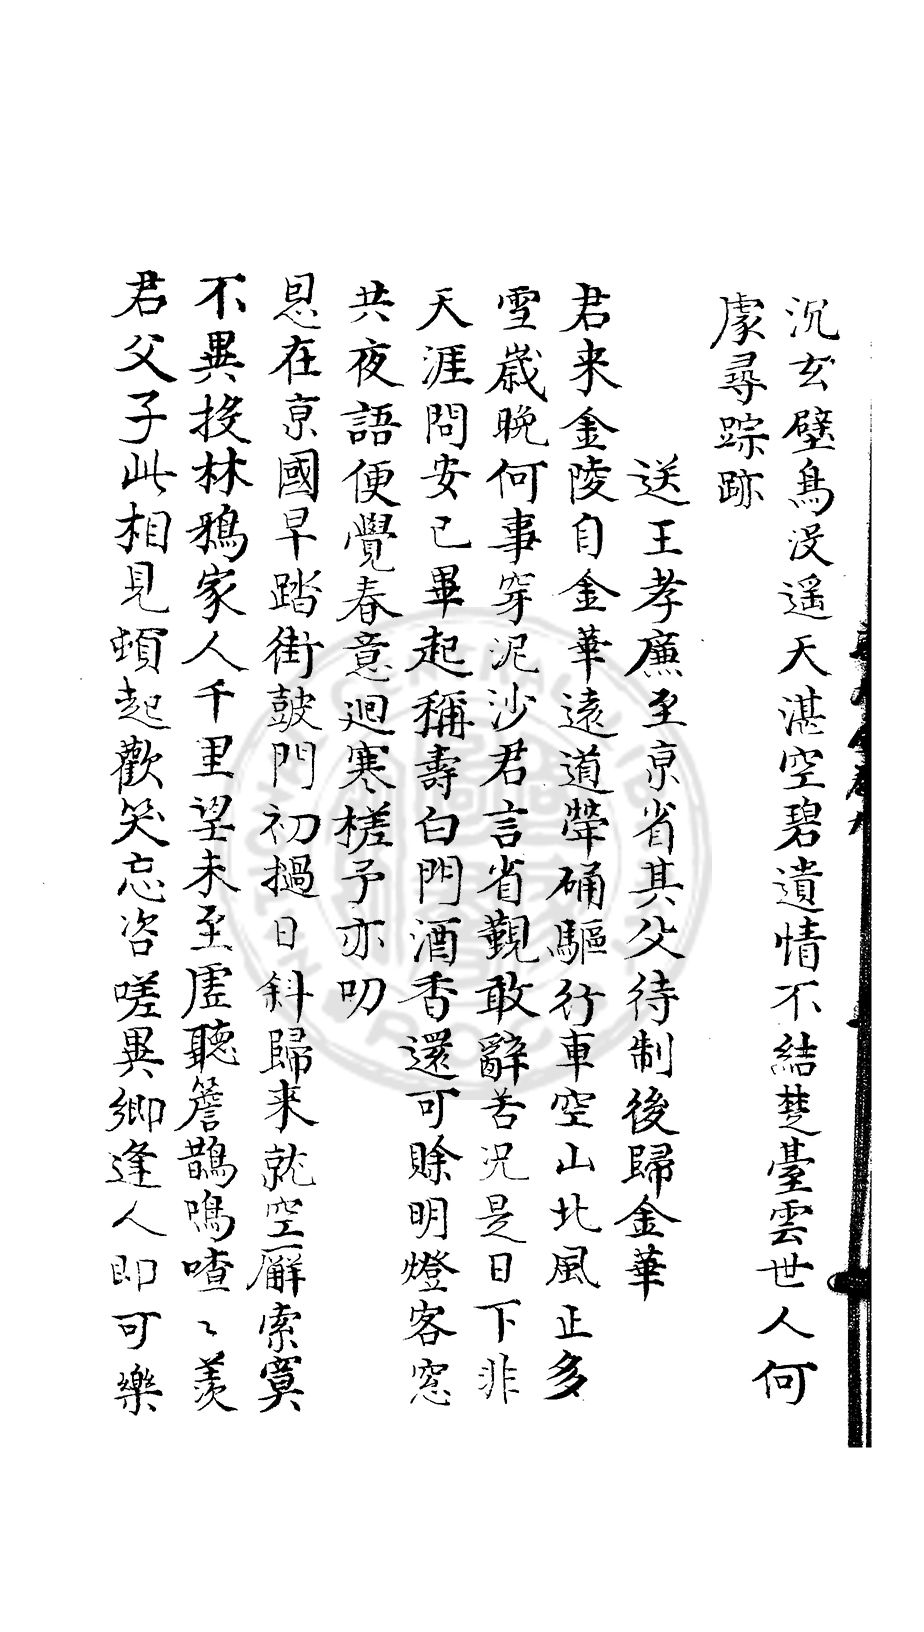 沉玄壁鳥没遥天湛空碧遺情不結楚臺雲世人何
處尋踪跡
送王孝廉至亰省其父待制後歸金華
君来金陵自金華遠道犖确驅行車空山北風正多
雪歲晚何事穿泥沙君言省覲敢辭苦况是日下非
天涯問安已畢起稱壽白門酒香還可賒明燈客窓
共夜語便覺春意迴寒槎予亦叨
恩在亰國早踏街鼓門初撾日斜歸来就空廨索寞
不異投林鴉家人千里望未至虚聽簷鵲鳴喳〻羡
君父子此相見頓起歡笑忘咨嗟異鄉逢人即可樂